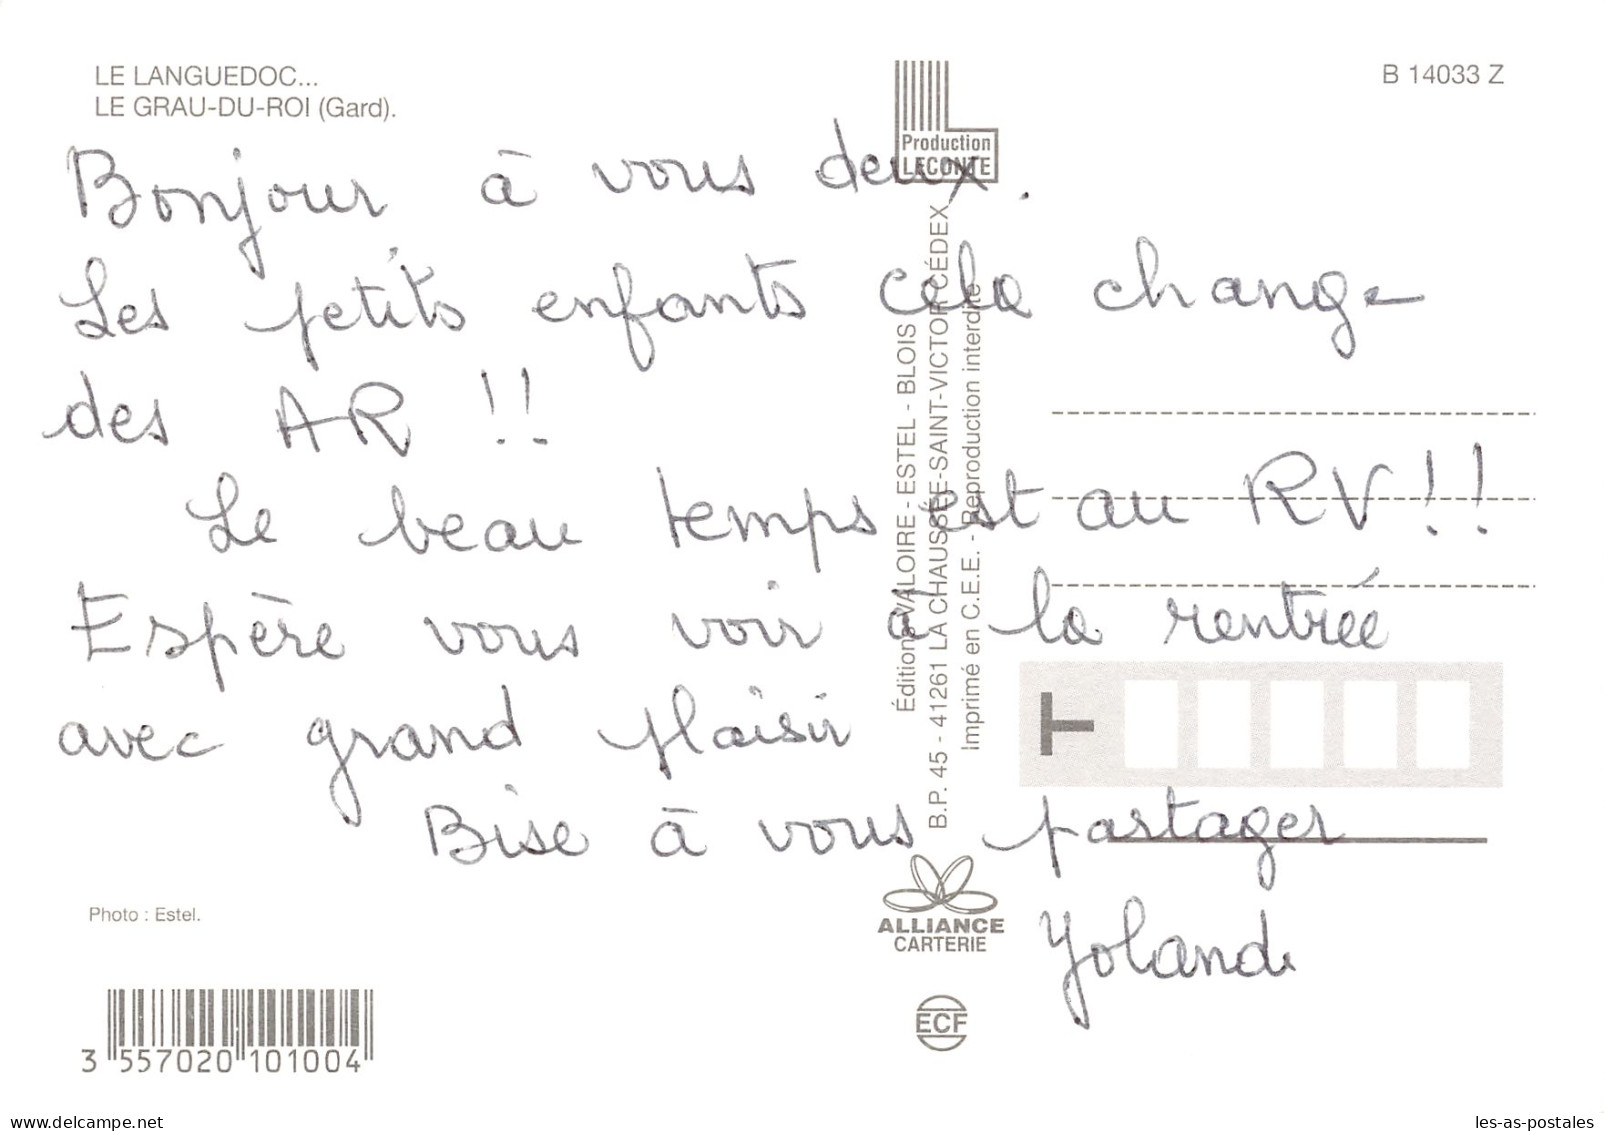 LE LANGUEDOC...
LE GRAU-DU-ROI (Gard).
B 14033 Z
Production
LECONTE
Bonjour à vous deux.
Les petits enfants cela change
des AR !!
Le beau temps est au RV !!
Espère vous voir à la rentrée
avec grand plaisir
Bise à vous partager
Yolande
Éditions VALOIRE - ESTEL - BLOIS
B.P. 45 - 41261 LA CHAUSSÉE-SAINT-VICTOR CÉDEX
Imprimé en C.E.E. - Reproduction interdite
T
Photo : Estel.
ALLIANCE
CARTERIE
ECF
3 557020 101004
delcampe.net
les-as-postales